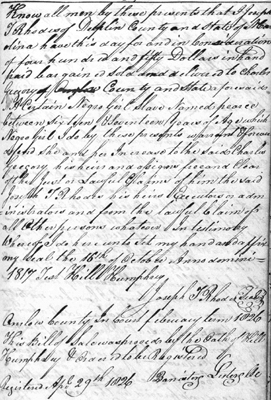 Know all men by these presents that I Joseph
T Rhodes of Duplin County and State of N Caro
lina have this day for and in Consideration
of four hundred and fifty Dollars in hand
paid bargain & sold and delivered to Charles
Gregory of County and State aforesaid
A Certain Negro Girl Slave Named peace
between Sixteen & Seventeen Years of Age which
Negro Girl I do by these presents warrant & forever
defend she and her Increase to the Said Charles
Gregory his heirs and assigns free and Clear
of the Just or Lawful Claims of him the said
Joseph T Rhodes his heirs Executors or adm
inistrators and from the lawful Claim of
all Other persons whatever In testimony
Whereof I do hereunto Set my hand and affix
my Seal the 16th of October Anno domini
1817 Test Hill Humphrey
Joseph T Rhodes Seal
Onslow County In Court February term 1826
This bill of Sale was proved by the Oath of Hill
Humphrey & Ordered to be
Registered Apl 29th 1826